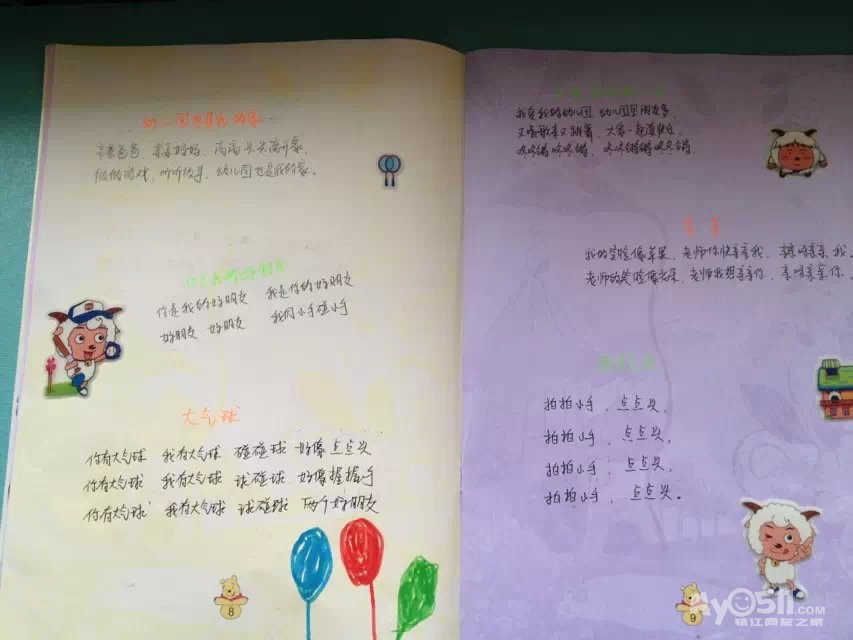 幼儿园也是我的家
亲亲爸爸，亲亲妈妈，高高兴兴离开家，
做做游戏，听听故事，幼儿园也是我的家。
你是我的好朋友
你是我的好朋友 我是你的好朋友
好朋友 好朋友 我们小手碰小手
大气球
你有大气球 我有大气球 碰碰球 好像点点头
你有大气球 我有大气球 球碰球 好像握握手
你有大气球 我有大气球 球碰球 两个好朋友
8
我爱我的幼儿园，幼儿园里朋友多，
又唱歌来又跳舞，大家一起真快乐，
咚咚锵咚咚锵，咚咚锵锵咚咚锵
亲亲
我的笑脸像苹果，老师你快亲亲我，亲呀亲亲我，
老师的笑脸像花朵，老师我想亲亲你，亲呀亲亲你。
拍拍小手，点点头，
拍拍小手，点点头，
拍拍小手，点点头，
拍拍小手，点点头。
9
my0511.com
镇江网友之家